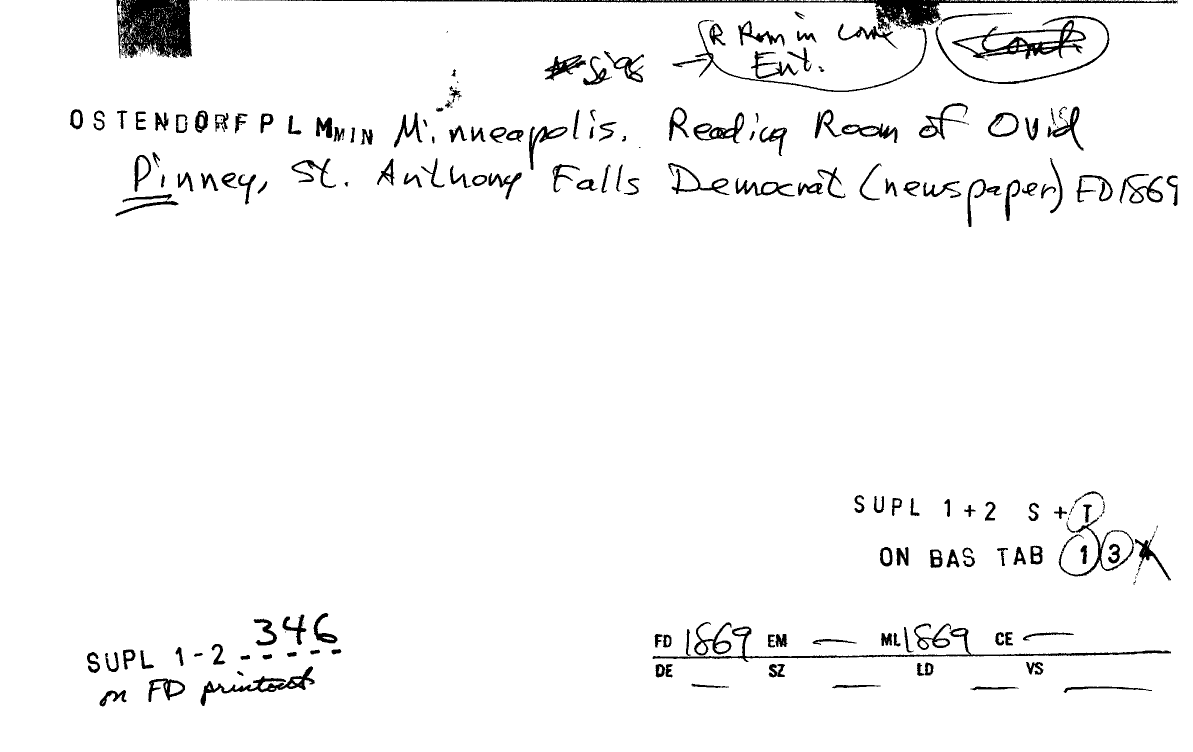 R Rom in Com
Ent.
OSTENDORF P L MMIN Minneapolis. Reading Room of Ovid
Pinney, St. Anthony Falls Democrat (newspaper) FD 1869
SUPL 1+2 S+T
ON BAS TAB 1 3
SUPL 1-2 346
on FD printout
FD 1869 EM — ML 1869 CE —
DE — SZ — LD — VS —